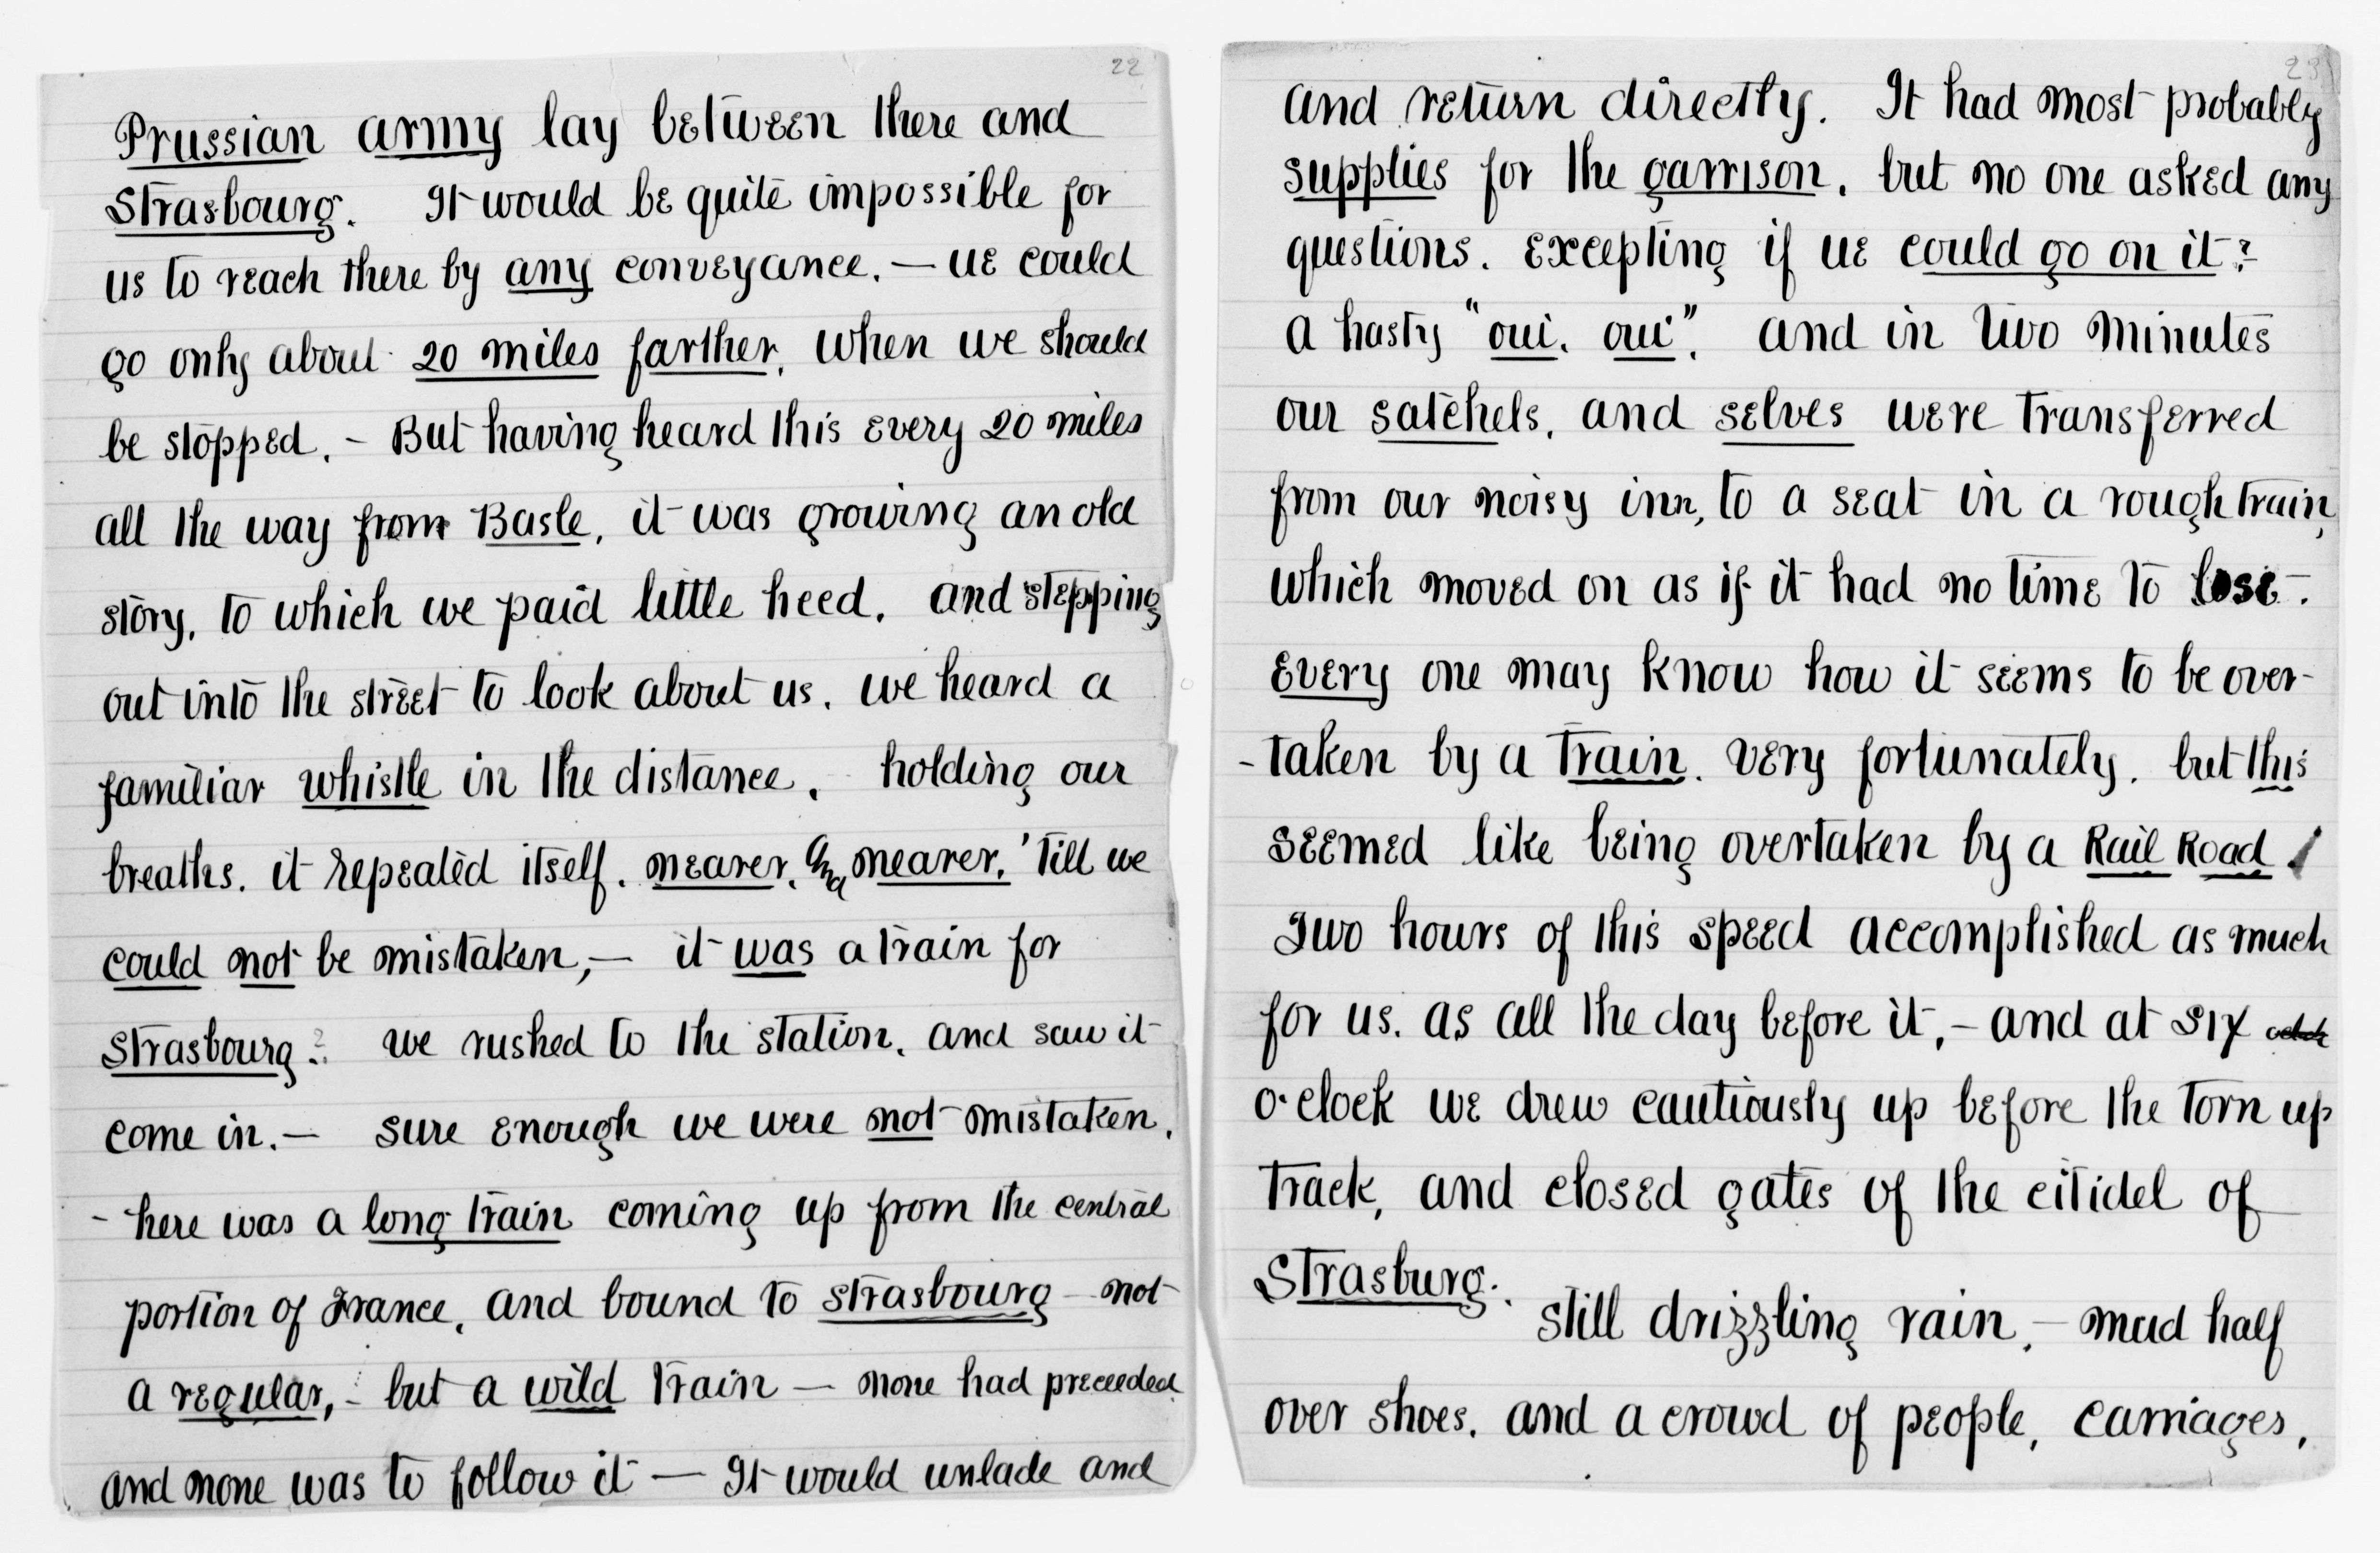 22
Prussian army lay between there and
Strasbourg. It would be quite impossible for
us to reach there by any conveyance. — we could
go only about 20 miles farther, when we should
be stopped. – But having heard this every 20 miles
all the way from Basle, it was growing an old
story, to which we paid little heed, and stepping
out into the street to look about us, we heard a
familiar whistle in the distance, holding our
breaths. it repeated itself. nearer. and nearer. 'till we
could not be mistaken, — it was a train for
Strasbourg? we rushed to the station, and saw it
come in. — sure enough we were not mistaken.
- here was a long train coming up from the central
portion of France, and bound to Strasbourg – not
a regular, - but a wild train — none had preceeded
and none was to follow it — It would unlade and
23
and return directly. It had most probably
supplies for the garrison, but no one asked any
questions. excepting if we could go on it?
a hasty "oui, oui", and in two minutes
our satchels, and selves were transferred
from our noisy inn, to a seat in a rough train,
which moved on as if it had no time to lose.
Every one may know how it seems to be over-
-taken by a train. very fortunately. but this
seemed like being overtaken by a Rail Road!
Two hours of this speed accomplished as much
for us, as all the day before it, – and at six
o'clock we drew cautiously up before the torn up
track, and closed gates of the citidel of
Strasburg.
still drizzling rain, – mud half
over shoes, and a crowd of people, carriages,